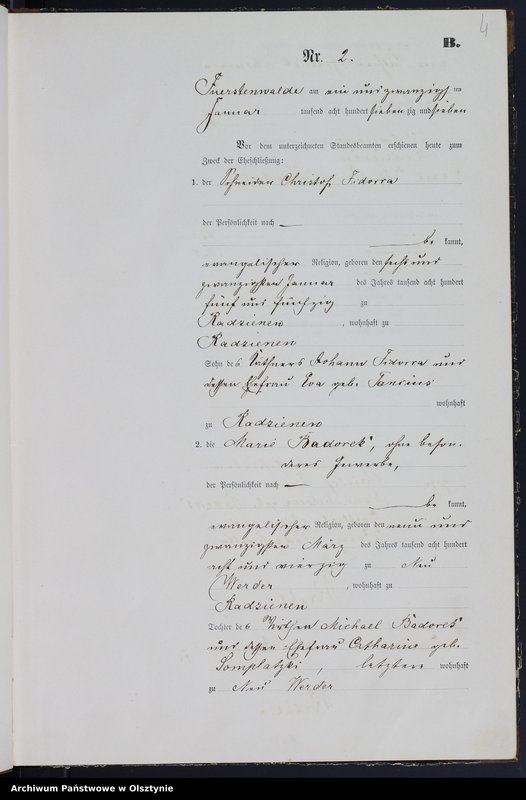 4
B.
Nr. 2.
Fuerstenwalde am ein und zwanzigsten
Januar tausend acht hundert sieben zig und sieben
Vor dem unterzeichneten Standesbeamten erschienen heute zum
Zweck der Eheschließung:
1. der Schneider Christof Fidorra
der Persönlichkeit nach —
be kannt,
evangelischer Religion, geboren den sechs und
zwanzigsten Januar des Jahres tausend acht hundert
fünf und fünfzig zu
Radzienen, wohnhaft zu
Radzienen
Sohn des Käthners Johann Fidorra und
dessen Ehefrau Eva geb.
wohnhaft
zu Radzienen
2. die Marie Badorek, ohne beson-
deres Gewerbe,
der Persönlichkeit nach —
be kannt,
evangelischer Religion, geboren den neun und
zwanzigsten März des Jahres tausend acht hundert
acht und vierzig zu Neu
Werder, wohnhaft zu
Radzienen
Tochter des Wirthen Michael Badorek
und dessen Ehefrau Catharine geb.
Somplatzki, letztere wohnhaft
zu Neu Werder
Archiwum Państwowe w Olsztynie